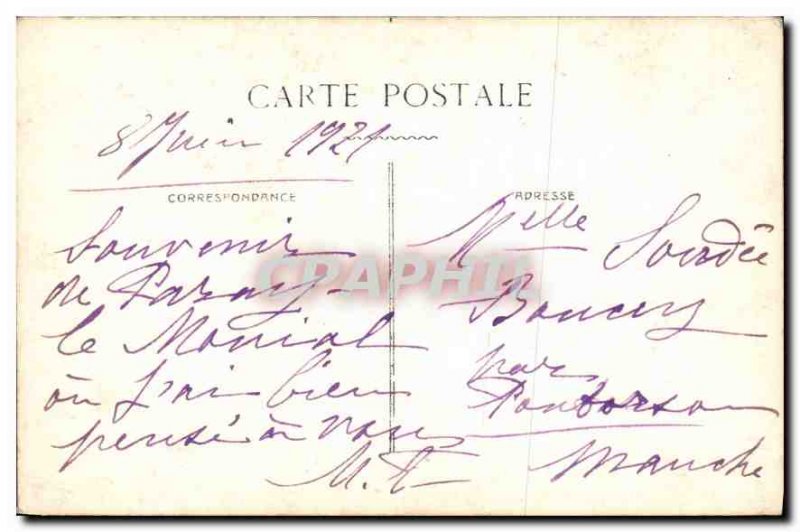 CARTE POSTALE
8 Juin 1921
CORRESPONDANCE
Souvenir
de Paray-
le Monial
où j'ai bien
pensé à vous
M.T
ADRESSE
Melle Sourdée
Boucey
par
Pontorson
Manche
CPARAMA